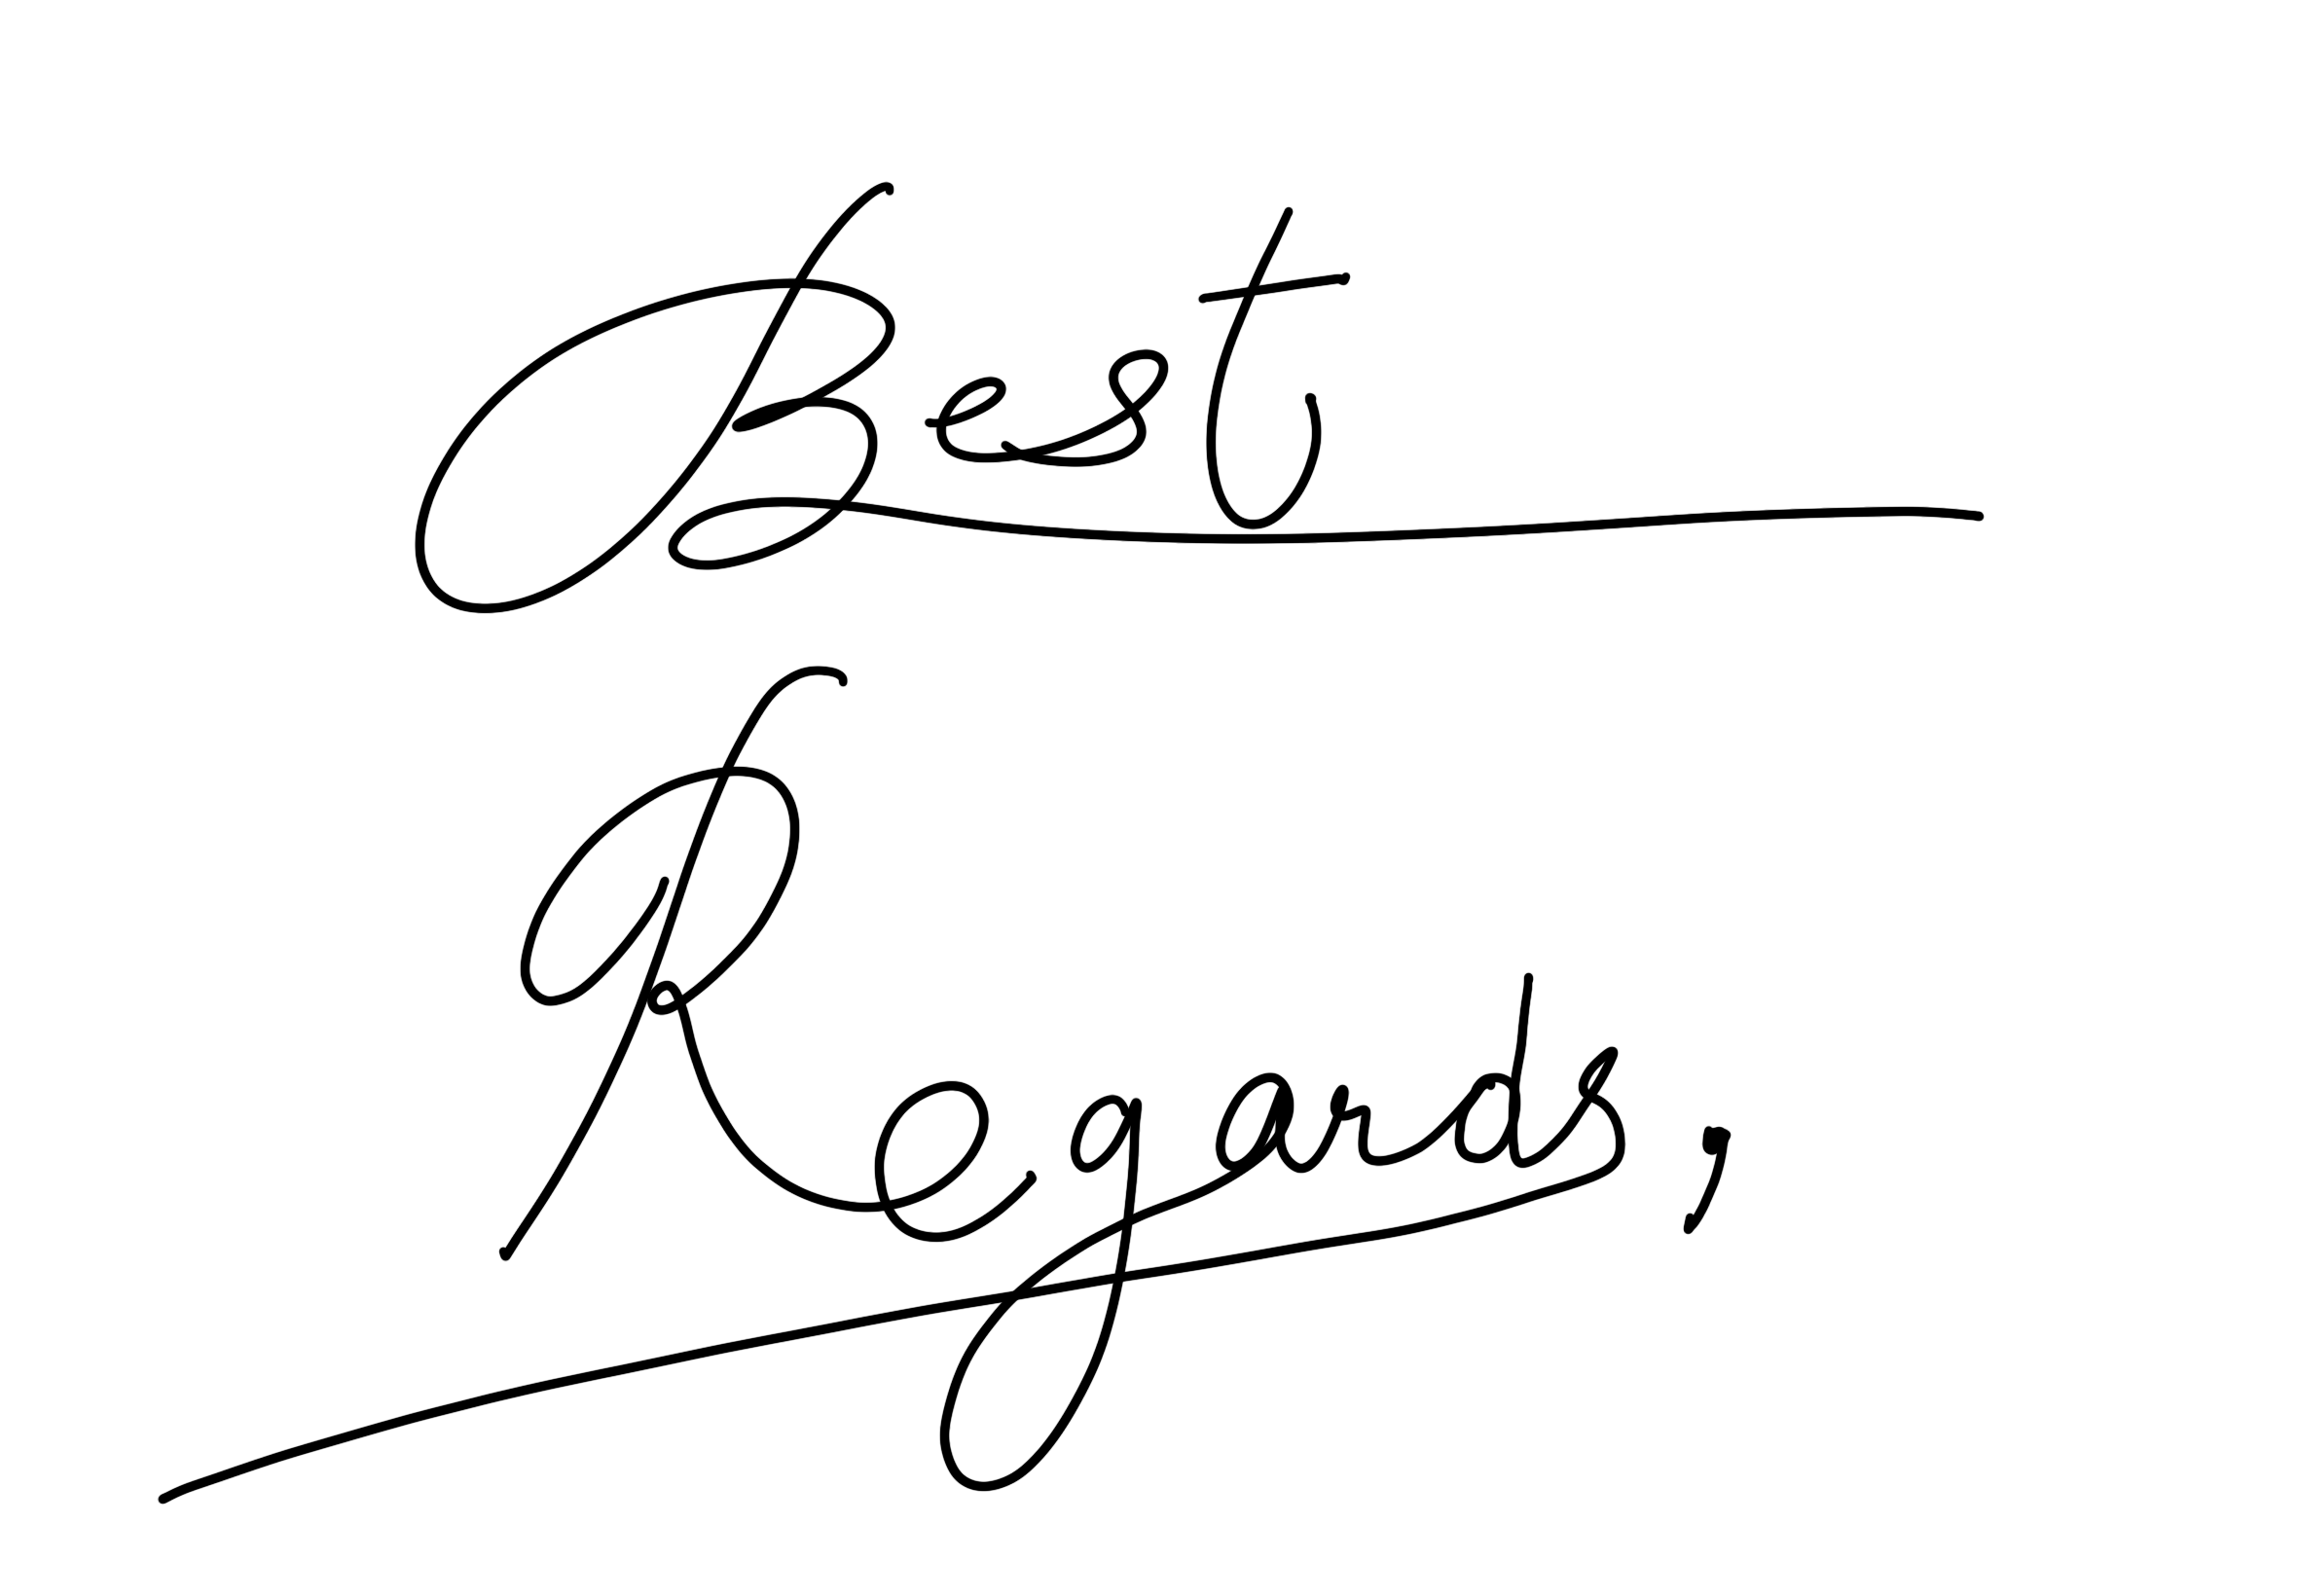 Best
Regards,